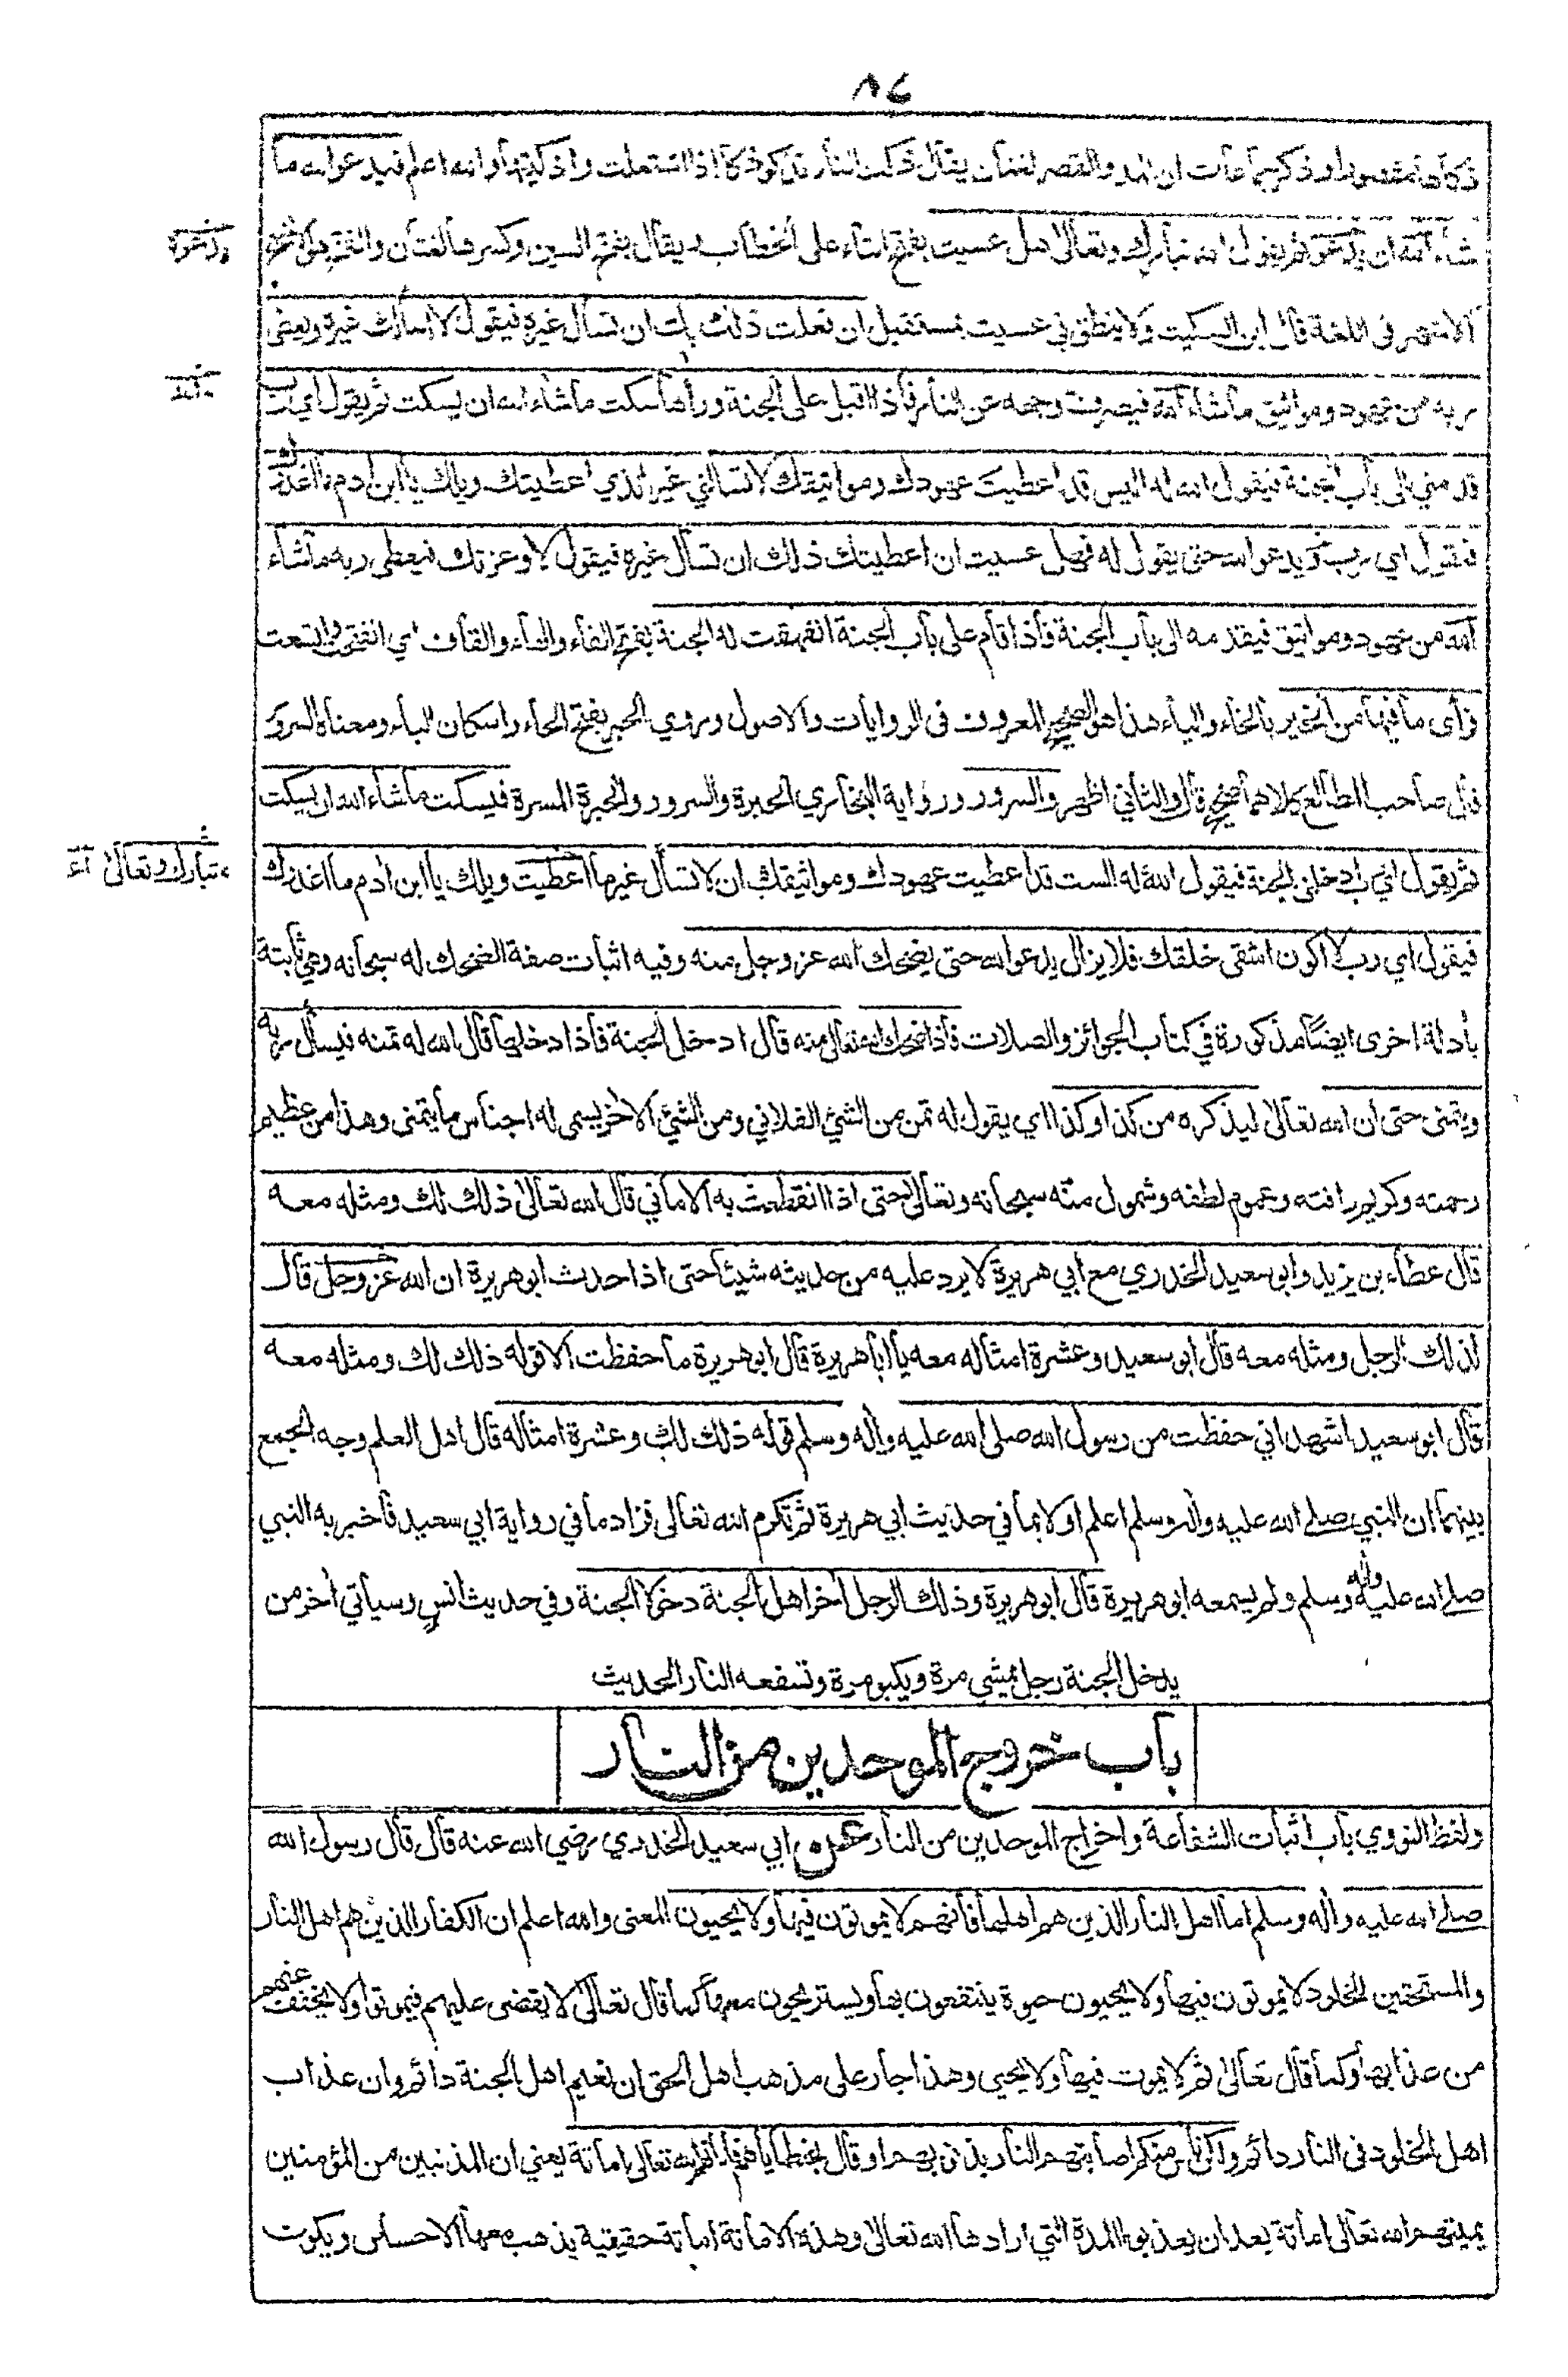 ٨٤
ذكاها مقصورا وذكر جماعات ان المد والقصر لغتان يقال ذكت النار تذكو ذكا اذا اشتعلت واذكيتها والله اعلم فيدعو الله ما
شاء الله ان يدعو ثم يقول الله تبارك وتعالى هل عسيت بفتح التاء على الخطاب ويقال بفتح السين وكسرها لغتان والفتح هو الاصح
الاشهر فى اللغة قال ابن السكيت ولا ينطق فى عسيت بمستقبل ان فعلت ذلك بك ان تسأل غيره فيقول لا اسألك غيره ويعطي
ربه من عهود ومواثيق ما شاء الله فيصرف وجهه عن النار فاذا اقبل على الجنة ورأها سكت ما شاء الله ان يسكت ثم يقول اي رب
قدمني الى باب الجنة فيقول الله له اليس قد اعطيت عهودك ومواثيقك لا تسألني غير الذي اعطيتك ويلك يا ابن ادم ما اغدرك
فيقول اي رب ويدعو الله حتى يقول له فهل عسيت ان اعطيتك ذلك ان تسأل غيره فيقول لا وعزتك فيعطي ربه ما شاء
الله من عهود ومواثيق فيقدمه الى باب الجنة فاذا قام على باب الجنة انفهقت له الجنة بفتح الفاء والهاء والقاف اي انفتحت واتسعت
فرأى ما فيها من الخير بالخاء والياء هذا هو الصحيح المعروف فى الروايات والاصول وروي الحبر بفتح الحاء واسكان الباء ومعناه السرور
قال صاحب المطالع كلاهما صحيح قال والثاني اظهر والسرور ورواية البخاري الحبرة والسرور والحبرة المسرة فيسكت ما شاء الله ان يسكت
ثم يقول اي رب ادخلني الجنة فيقول الله له الست قد اعطيت عهودك ومواثيقك ان لا تسأل غير ما اعطيت ويلك يا ابن ادم ما اغدرك
تبارك وتعالى
فيقول اي رب لا اكون اشقى خلقك فلا يزال يدعو الله حتى يضحك الله عز وجل منه وفيه اثبات صفة الضحك له سبحانه وهي ثابتة
بأدلة اخرى ايضا مذكورة في كتاب الجوائز والصلات فاذا ضحك الله تعالى منه قال ادخل الجنة فاذا دخلها قال الله له تمنه فيسأل ربه
ويتمنى حتى ان الله تعالى ليذكره من كذا وكذا اي يقول له تمن من الشئ الفلاني ومن الشئ الاخر يسمى له اجناس ما يتمنى وهذا من عظيم
رحمته وكريم رافته وعموم لطفه وشمول منّه سبحانه وتعالى حتى اذا انقطعت به الاماني قال الله تعالى ذلك لك ومثله معه
قال عطاء بن يزيد وابو سعيد الخدري مع ابي هريرة لا يرد عليه من حديثه شيئا حتى اذا حدث ابو هريرة ان الله عز وجل قال
لذلك الرجل ومثله معه قال ابو سعيد وعشرة امثاله معه يا ابا هريرة قال ابو هريرة ما حفظت الا قوله ذلك لك ومثله معه
قال ابو سعيد اشهد اني حفظت من رسول الله صلى الله عليه واله وسلم قوله ذلك لك وعشرة امثاله قال اهل العلم وجه الجمع
بينهما ان النبي صلى الله عليه واله وسلم اعلم اولا بما في حديث ابي هريرة ثم تكرم الله تعالى فزاد ما في رواية ابي سعيد فأخبر به النبي
صلى الله عليه واله وسلم ولم يسمعه ابو هريرة قال ابو هريرة وذلك الرجل اخر اهل الجنة دخولا الجنة وفي حديث انس وسيأتي اخر من
يدخل الجنة رجل يمشي مرة ويكبو مرة وتسفعه النار الحديث
باب خروج الموحدين من النار
ولفظ النووي باب اثبات الشفاعة واخراج الموحدين من النار عن ابي سعيد الخدري رضي الله عنه قال قال رسول الله
صلى الله عليه واله وسلم اما اهل النار الذين هم اهلها فأنهم لا يموتون فيها ولا يحيون المعنى والله اعلم ان الكفار الذين هم اهل النار
والمستحقين للخلود لا يموتون فيها ولا يحيون حيوة ينتفعون بها ويستريحون معها كما قال تعالى لا يقضى عليهم فيموتوا ولا يخفف عنهم
من عذابها وكما قال تعالى ثم لا يموت فيها ولا يحيى وهذا جار على مذهب اهل الحق ان نعيم اهل الجنة دائم وان عذاب
اهل الخلود فى النار دائم ولكن ناس منكم اصابتهم النار بذنوبهم او قال بخطاياهم فأماتهم الله تعالى اماتة يعني ان المذنبين من المؤمنين
يميتهم الله تعالى اماتة بعد ان يعذبوا المدة التي ارادها الله تعالى وهذه الاماتة اماتة حقيقية يذهب معها الاحساس ويكون